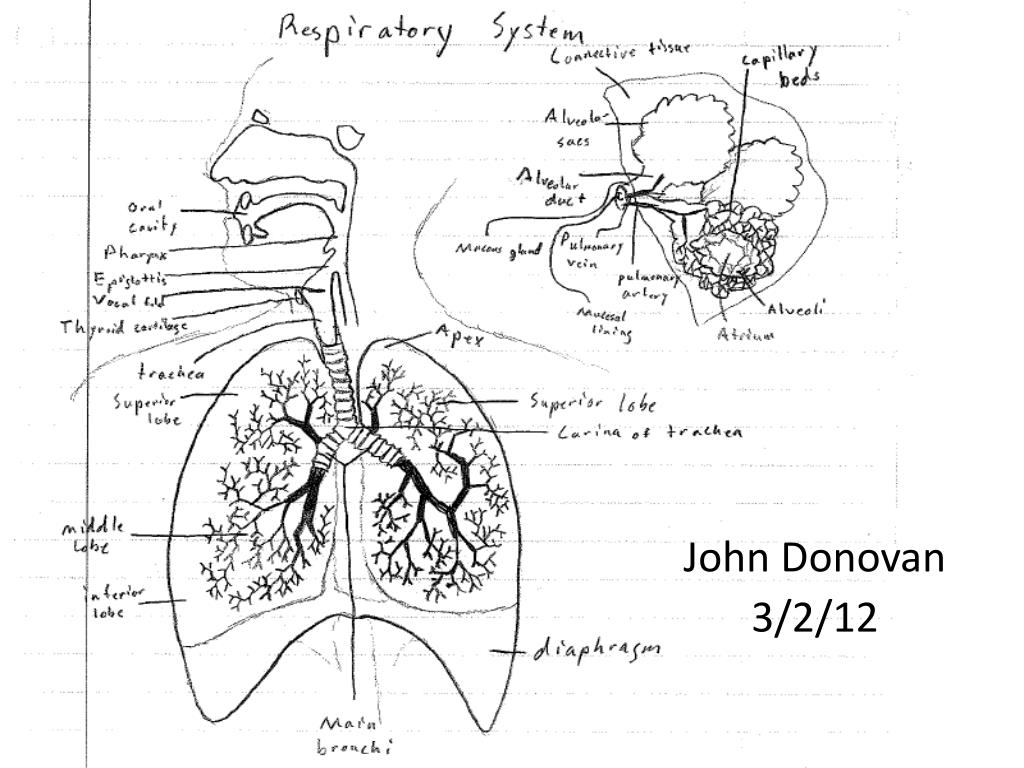 Respiratory System
Connective tissue
capillary
beds
Alveolar
sacs
Alveolar
duct
Mucous gland
Pulmonary
vein
pulmonary
artery
Mucosal
lining
Alveoli
Atrium
Oral
cavity
Pharynx
Epiglottis
Vocal fold
Thyroid cartilage
trachea
Superior
lobe
Apex
Superior lobe
Carina of trachea
middle
lobe
inferior
lobe
diaphragm
Main
bronchi
John Donovan
3/2/12